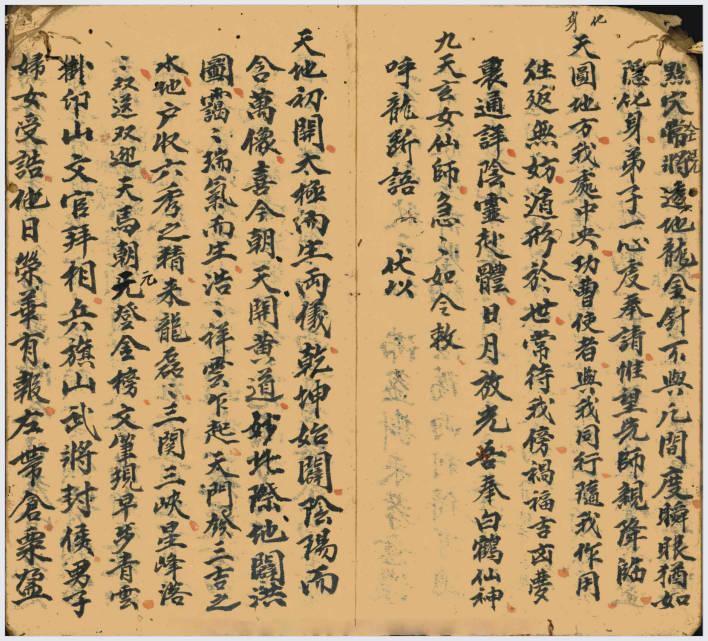 點穴常將透地龍金針不與凡間度瞬眼猶如
金光
隱化身弟子一心虔奉請惟望先師親降臨
化身
天圓地方我處中央功曹使者與我同行隨我作用
往返無妨遁形於世常待我傍禍福吉凶夢
裏通詳陰靈赴體日月放光吾奉白鶴仙神
九天玄女仙師急〻如令敕
呼龍斷語 伏以
天地初開太極而生両儀乾坤始闢陰陽而
含萬像喜今朝天開黄道妙此際地闢洪
圖靄〻瑞氣而生浩〻祥雲乍起天門發三吉之
水地户收六秀之精来龍磊〻三関三峽星峰落
〻双送双迎天馬朝元登金榜文筆現早步青雲
元
掛印山文官拜相兵旗山武將封侯男子
婦女受誥他日榮華有報左帶倉粟盈